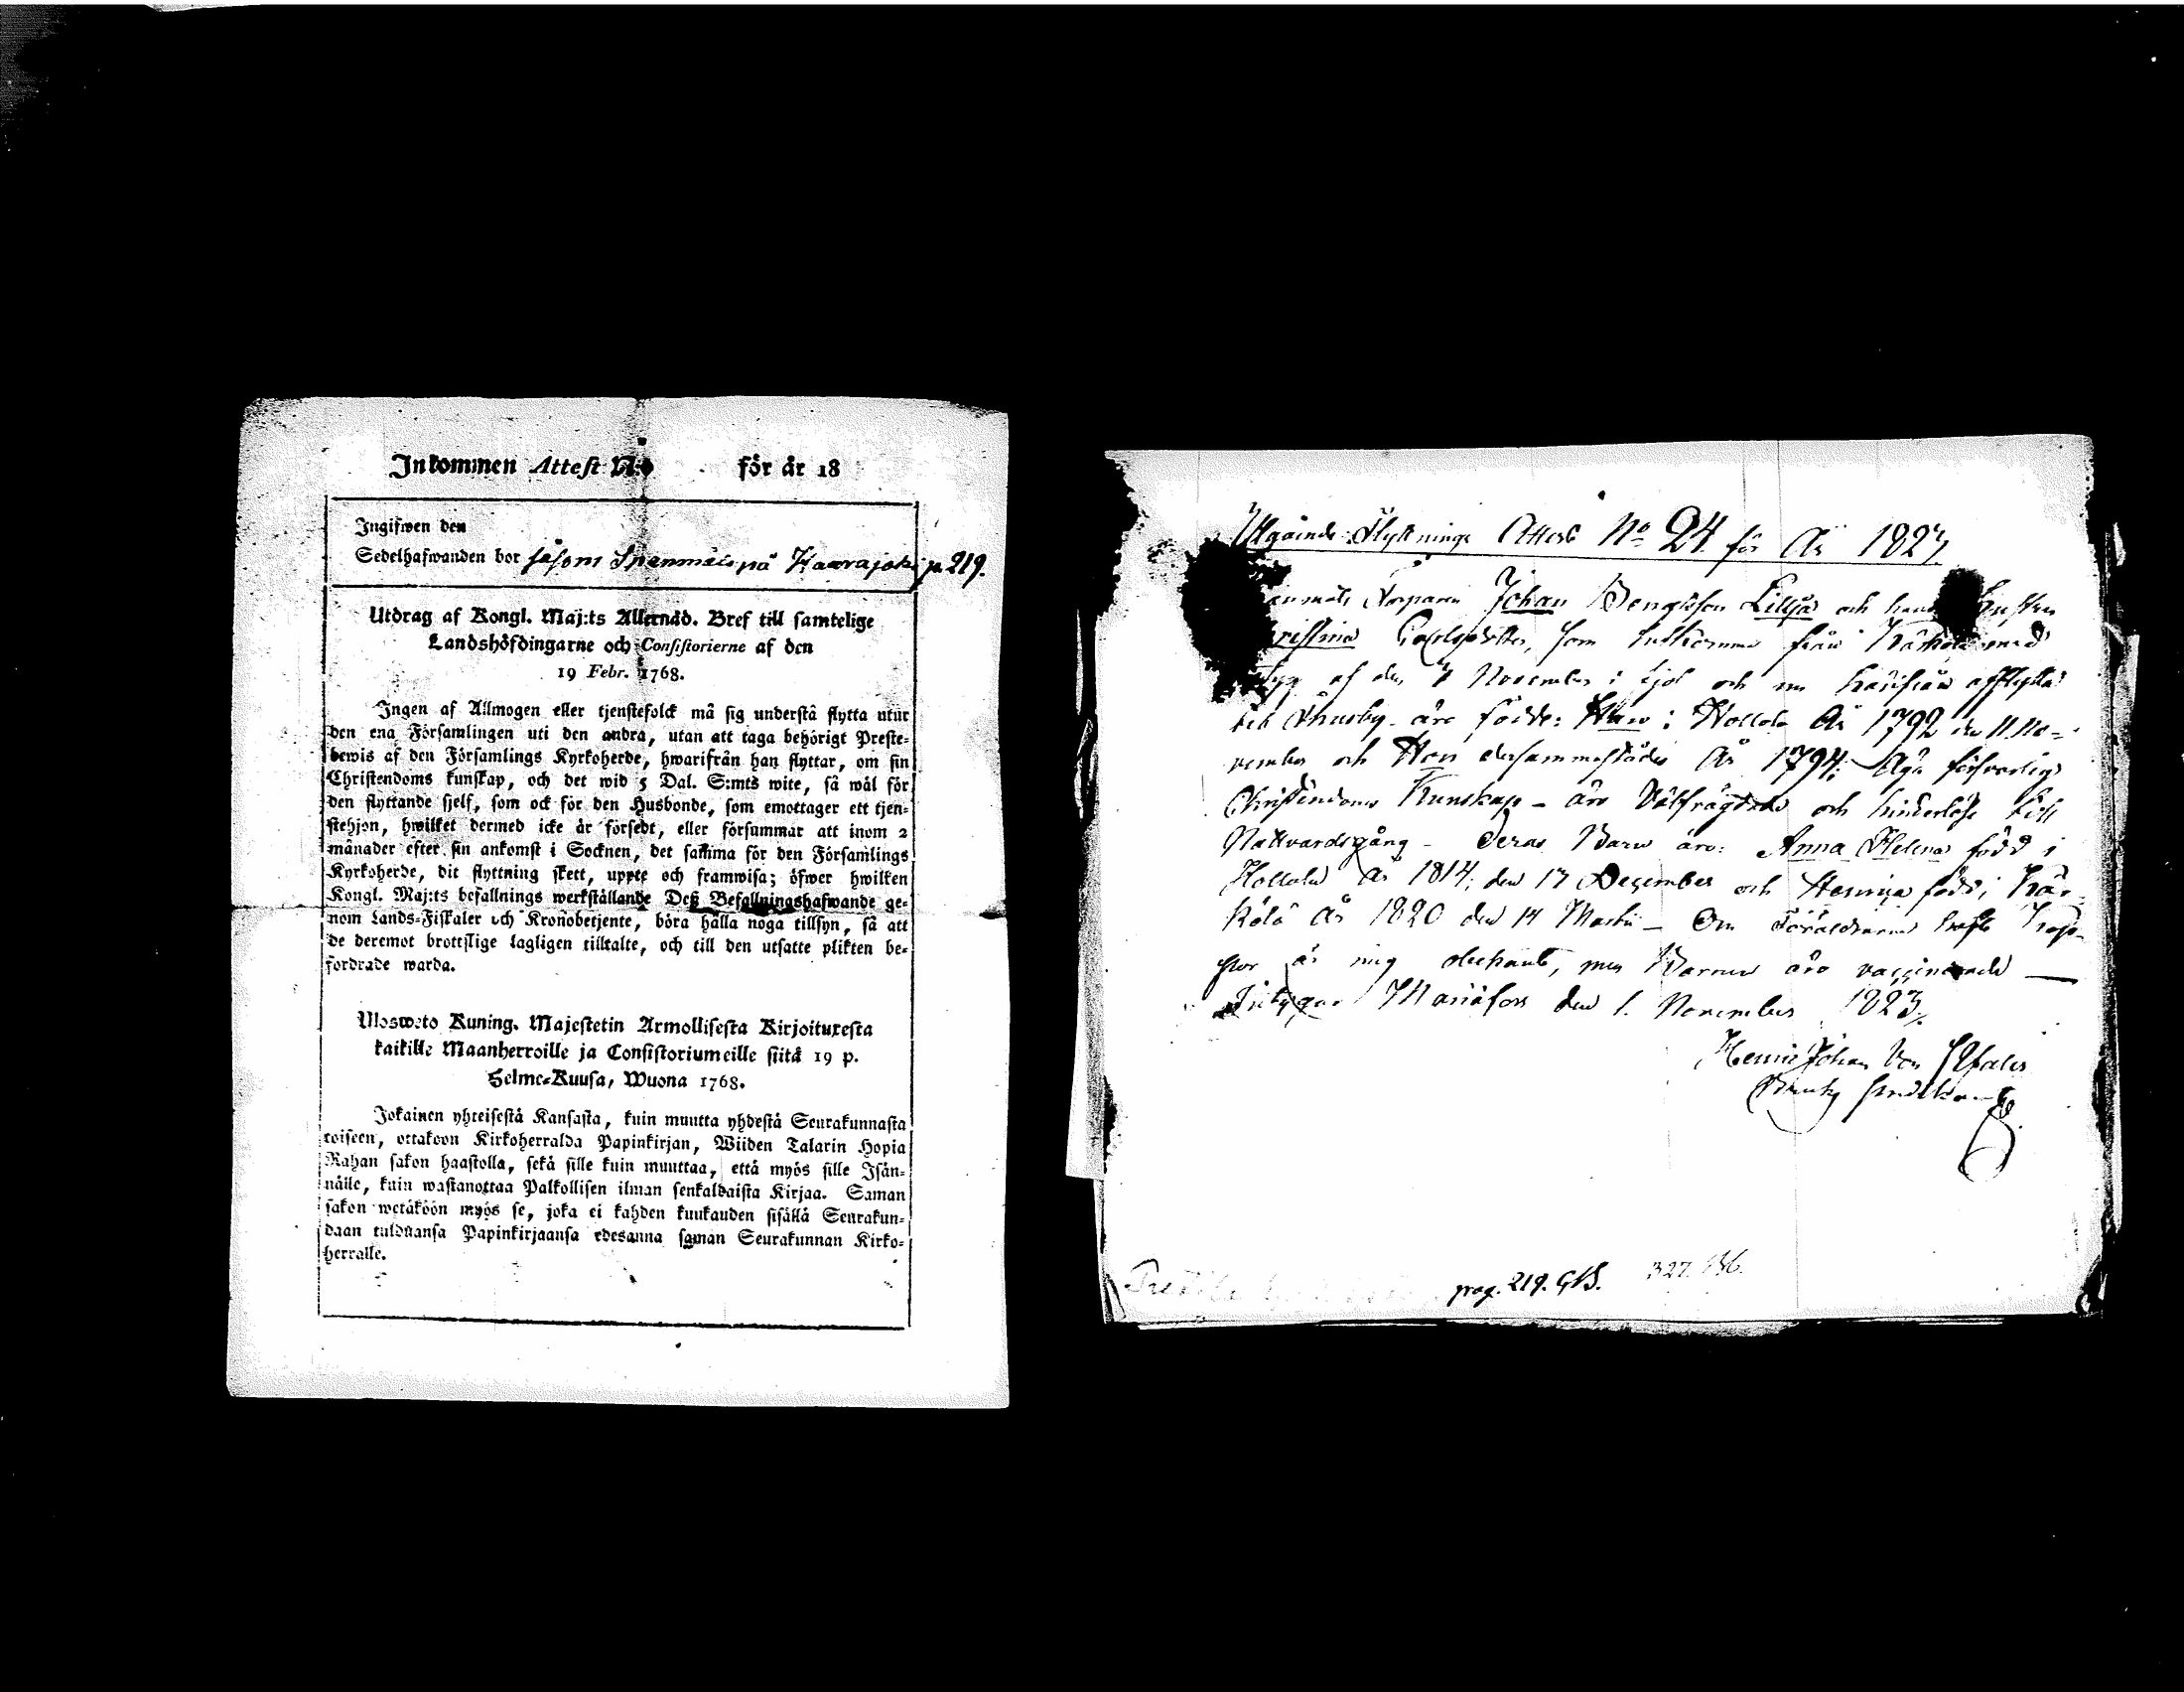 Inkommen Attest N:o för år 18
Ingifwen den
Sedelhafwanden bor såsom Spanmåls på Haarajoki p. 219.
Utdrag af Kongl. Maj:ts Allernåd. Bref till samtelige
Landshöfdingarne och Consistorierne af den
19 Febr. 1768.
Ingen af Allmogen eller tjenstefolck må sig understå flytta utur
den ena Församlingen uti den andra, utan att taga behörigt Preste-
bewis af den Församlings Kyrkoherde, hwarifrån han flyttar, om sin
Christendoms kunskap, och det wid 5 Dal. S:mts wite, så wäl för
den flyttande sjelf, som ock för den Husbonde, som emottager ett tjen-
stehjon, hwilket dermed icke är försedt, eller försummar att inom 2
månader efter sin ankomst i Socknen, det samma för den Församlings
Kyrkoherde, dit flyttning skett, uppte och framwisa; öfwer hwilken
Kongl. Maj:ts befallnings werkställande Deß Befallningshafwande ge-
nom Lands-Fiskaler och Kronobetjente, böra hålla noga tillsyn, så att
de deremot brottslige lagligen tilltalte, och till den utsatte plikten be-
fordrade warda.
Ulosweto Kuning. Majestetin Armollisesta Kirjoituxesta
kaikille Maanherroille ja Consistoriumeille siitä 19 p.
Helme-Kuusa, Wuona 1768.
Jokainen yhteisestä Kansasta, kuin muutta yhdestä Seurakunnasta
toiseen, ottakoon Kirkoherralda Papinkirjan, Wiiden Talarin Hopia
Rahan sakon haastolla, sekä sille kuin muuttaa, että myös sille Isän-
nälle, kuin wastanottaa Palkollisen ilman senkaldaista Kirjaa. Saman
sakon wetäköön myös se, joka ei kahden kuukauden sisällä Seurakun-
daan tulduansa Papinkirjaansa edesanna saman Seurakunnan Kirko-
herralle.
Utgående Flyttnings Attest No 24 för År 1823
Torparen Johan Bengtsson Lilljä och hans Hustru
Carlsdotter, som inkommo från Kärkölä med
af den 4 November i fjol och nu härifrån afflytta
till Thusby äro födde: Han i Hollola År 1792 den 11 No-
vember och Hon dersammastädes År 1794; Äga försvarlig
Christendoms Kunskap - äro Välfrägdade och hinderlöse till
Nattvardsgång - Deras Barn äro: Anna Helena född i
Hollola År 1814; den 17 December och Henrica född i Kär-
kölä År 1820 den 14 Martii - Om Föräldrarne haft Kop-
por är mig obekant, men Barnen äro vaccinerade
Intygar Mariefors den 1. November 1823.
Henric Johan Von Pfaler
Bruks Predikant
pag. 219. GB. 327.